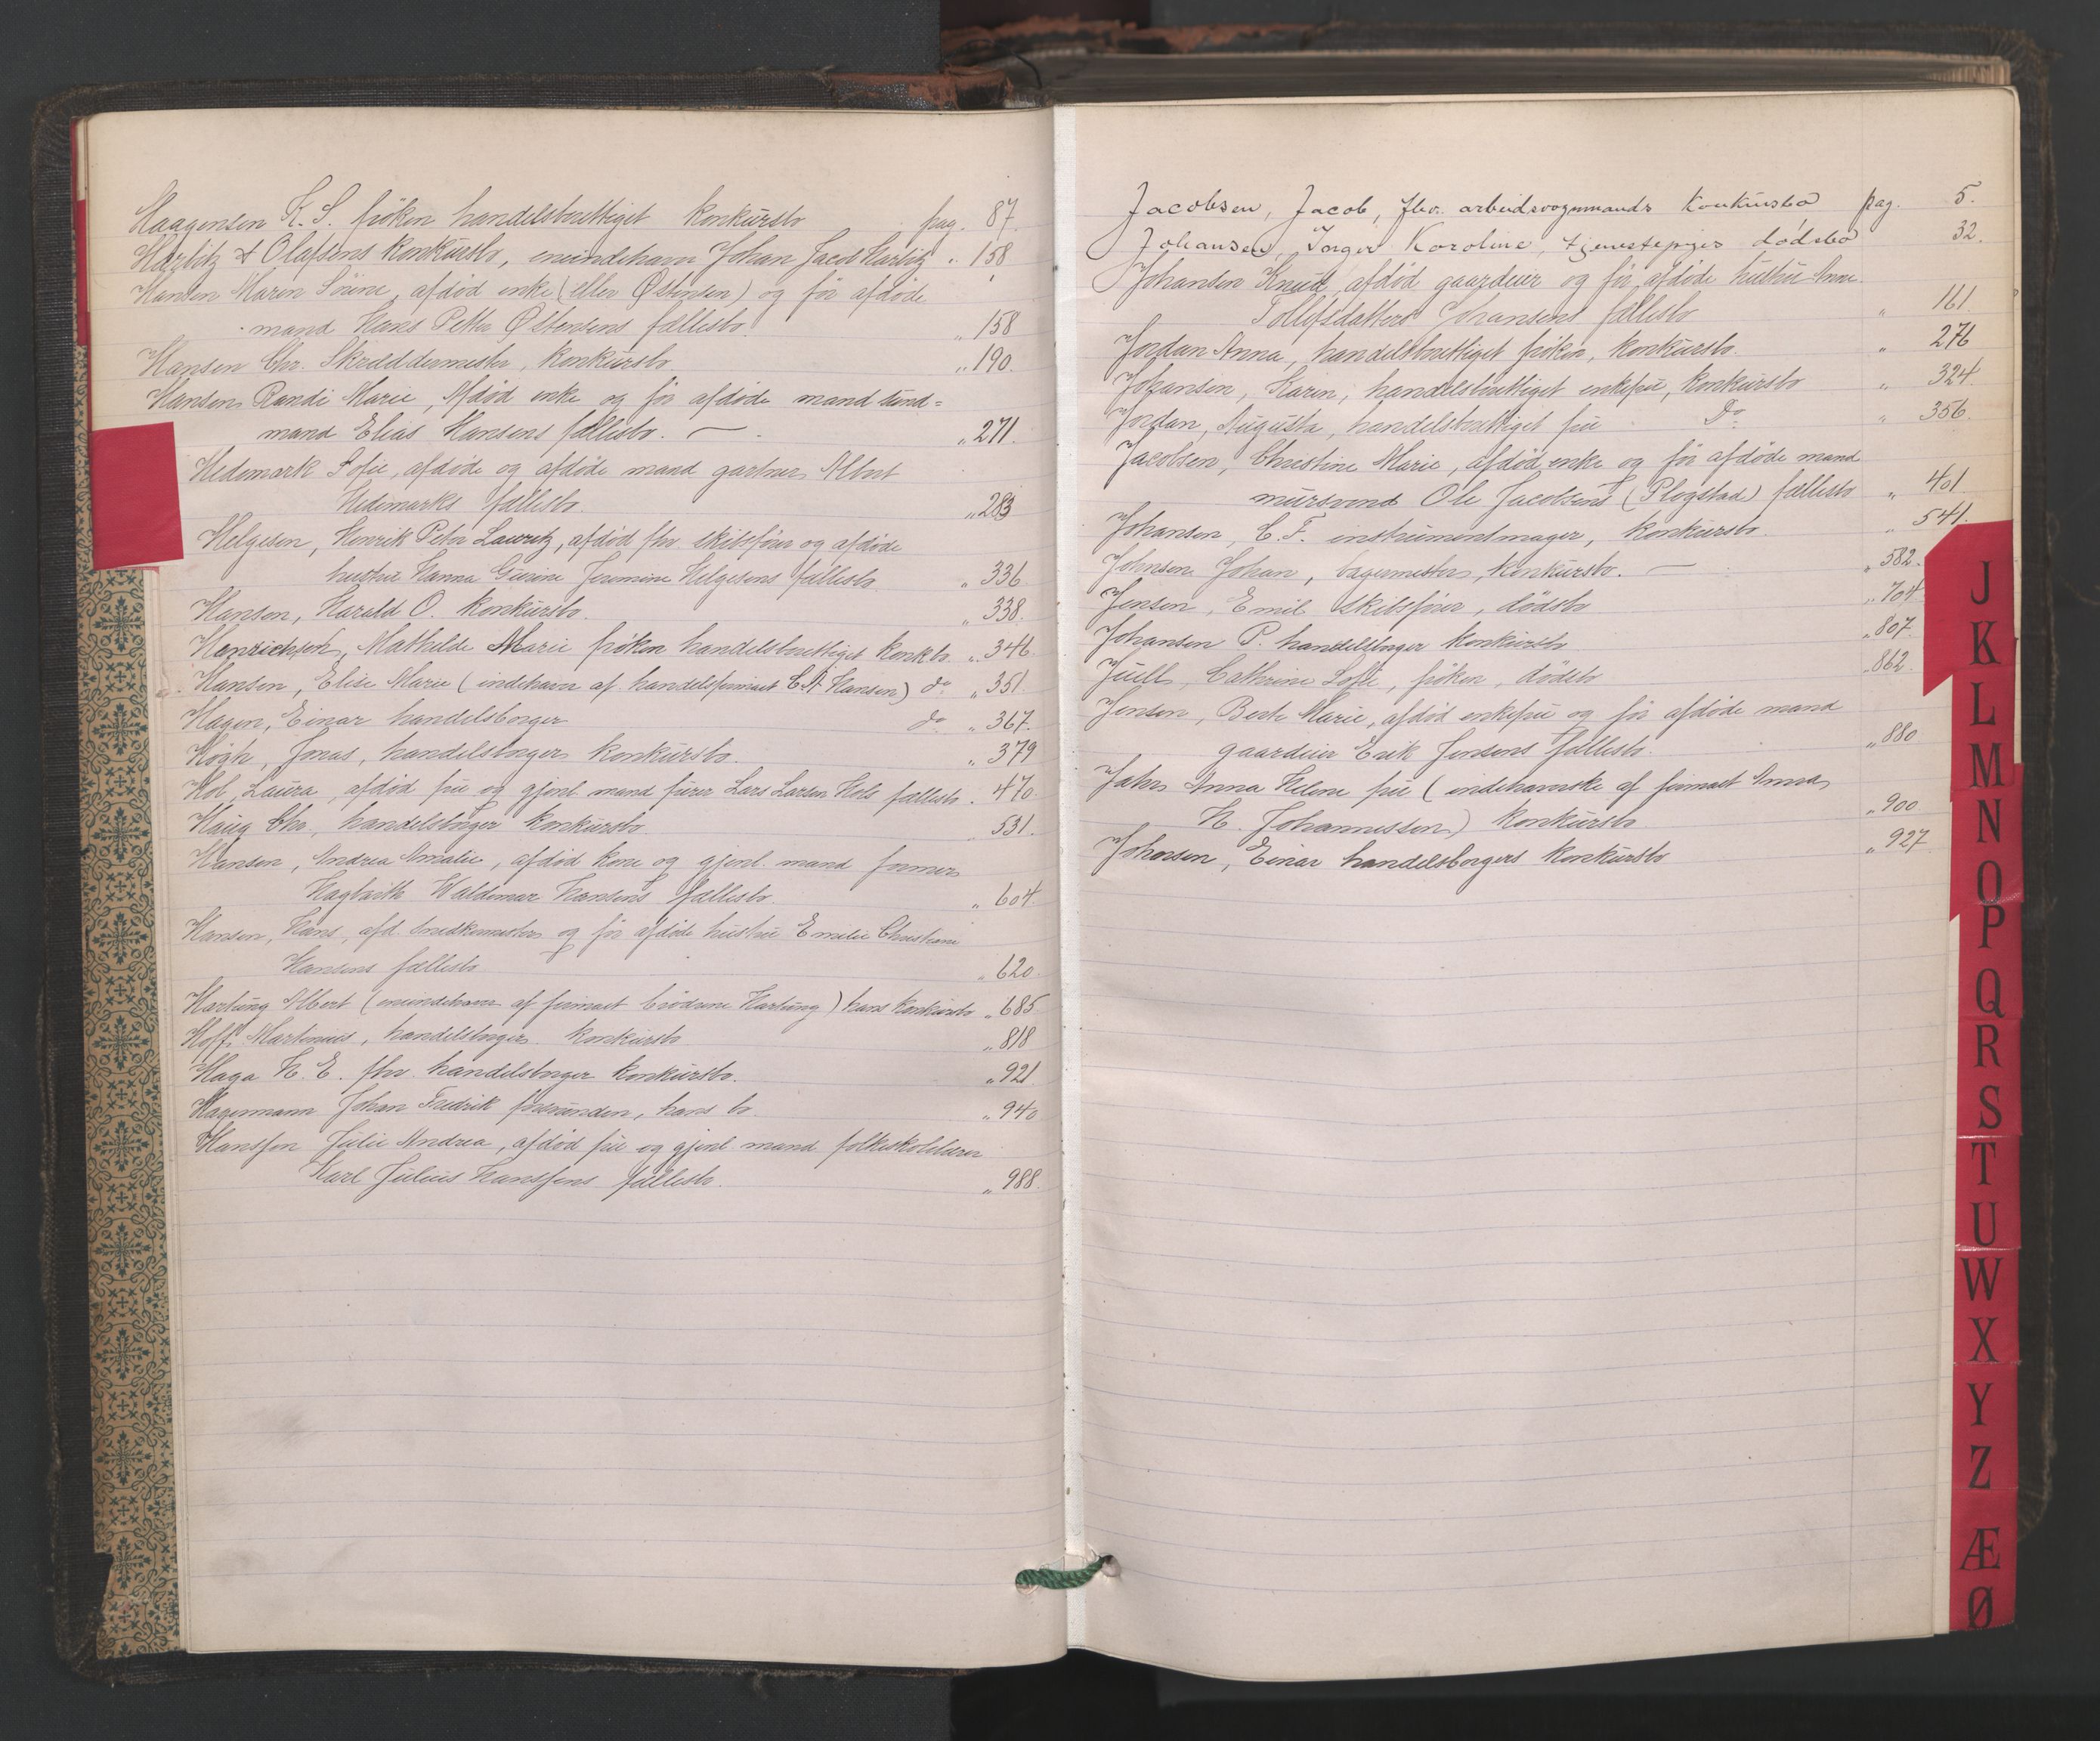 Haagensen K. S. frøken handelsberettiget konkursbo pag. 87.
Harbitz & Olafsens konkursbo, enindehaver Johan Jacob Harbitz „ 158
Hansen Maren Sørine, afdød enke (eller Østensen) og før afdøde
mand Hans Petter Østensens fællesbo „ 158
Hansen Chr. Skræddermester, konkursbo „ 190.
Hansen Randi Marie, Afdød enke og før afdøde mand
mand Elias Hansens fællesbo. — „ 271.
Hedemark Sofie, afdøde og afdøde mand gartner Albert
Hedemarks fællesbo. „ 283
Helgesen, Henrik Peter Lauritz, afdød fhv. skibsfører og afdøde
hustru Hanna Gurine Jeremine Helgesens fællesbo „ 336
Hansen, Harald O. konkursbo. „ 338.
Henrichsen, Mathilde Marie frøken handelsberettiget konk.bo „ 346.
Hansen, Elise Marie (indehaver af handelsfirmaet C. A. Hansen) do „ 351
Hagen, Einar handelsborger do „ 367.
Høgh, Jonas, handelsborger konkursbo. „ 379
Hol, Laura, afdød fru og gjenl. mand fører Lars Larsen Hols fællesbo „ 470.
Haug Chr., handelsborger konkursbo 531.
Hansen, Andrea Amalie, afdød kone og gjenl. mand former
Hagbarth Waldemar Hansens fællesbo. „ 604
Hansen, Hans, afd. snedkermester og før afdøde hustru Emilie Christiane
Hansens fællesbo „ 620.
Hartung Albert (enindehaver af firmaet brødrene Hartung) hans konkursbo „ 685
Hoff, Martinus, handelsborger konkursbo „ 818
Haga H. E. fhv. handelsborger konkursbo. „ 921
Hagemann Johan Fredrik forsvunden, hans bo. „ 940
Hanssen Julie Andrea, afdød fru og gjenl. mand folkeskolelærer
Karl Julius Hanssens fællesbo. „ 988.
Jacobsen, Jacob, fhv. arbeidsvognmands konkursbo pag. 5.
Johansen, Inger Karoline, tjenestepiges dødsbo 32.
Johansen Knud, afdød gaardeier og før afdøde hustru Anne
Tollefsdatters Johansens fællesbo „ 161.
Jordan Anna, handelsberettiget frøken, konkursbo. „ 276
Johansen, Karin, handelsberettiget enkefru, konkursbo „ 324.
Jordan, Augusta, handelsberettiget fru Do „ 356.
Jacobsen, Christine Marie, afdød enke og før afdøde mand
mursvend Ole Jacobsens (Plogstad) fællesbo „ 401
Johansen, C. F. instrumentmager, konkursbo. „ 541.
Johnsen Johan, bagermester, konkursbo. — „ 582.
Jensen, Emil skibsfører, dødsbo „ 704
Johansen P. handelsborger konkursbo „ 807.
Juell, Cathrine Lofte, frøken, dødsbo „ 862.
Jensen, Berthe Marie, afdød enkefru og før afdøde mand
gaardeier Erik Jensens fællesbo. „ 880
Jahn Anna Helene fru (indehaverske af firmaet Anna
H. Johannessen) konkursbo „ 900
Johnsen, Einar handelsborgers konkursbo „ 927
J
K
L
M
N
O
P
Q
R
S
T
U
W
X
Y
Z
Æ
Ø